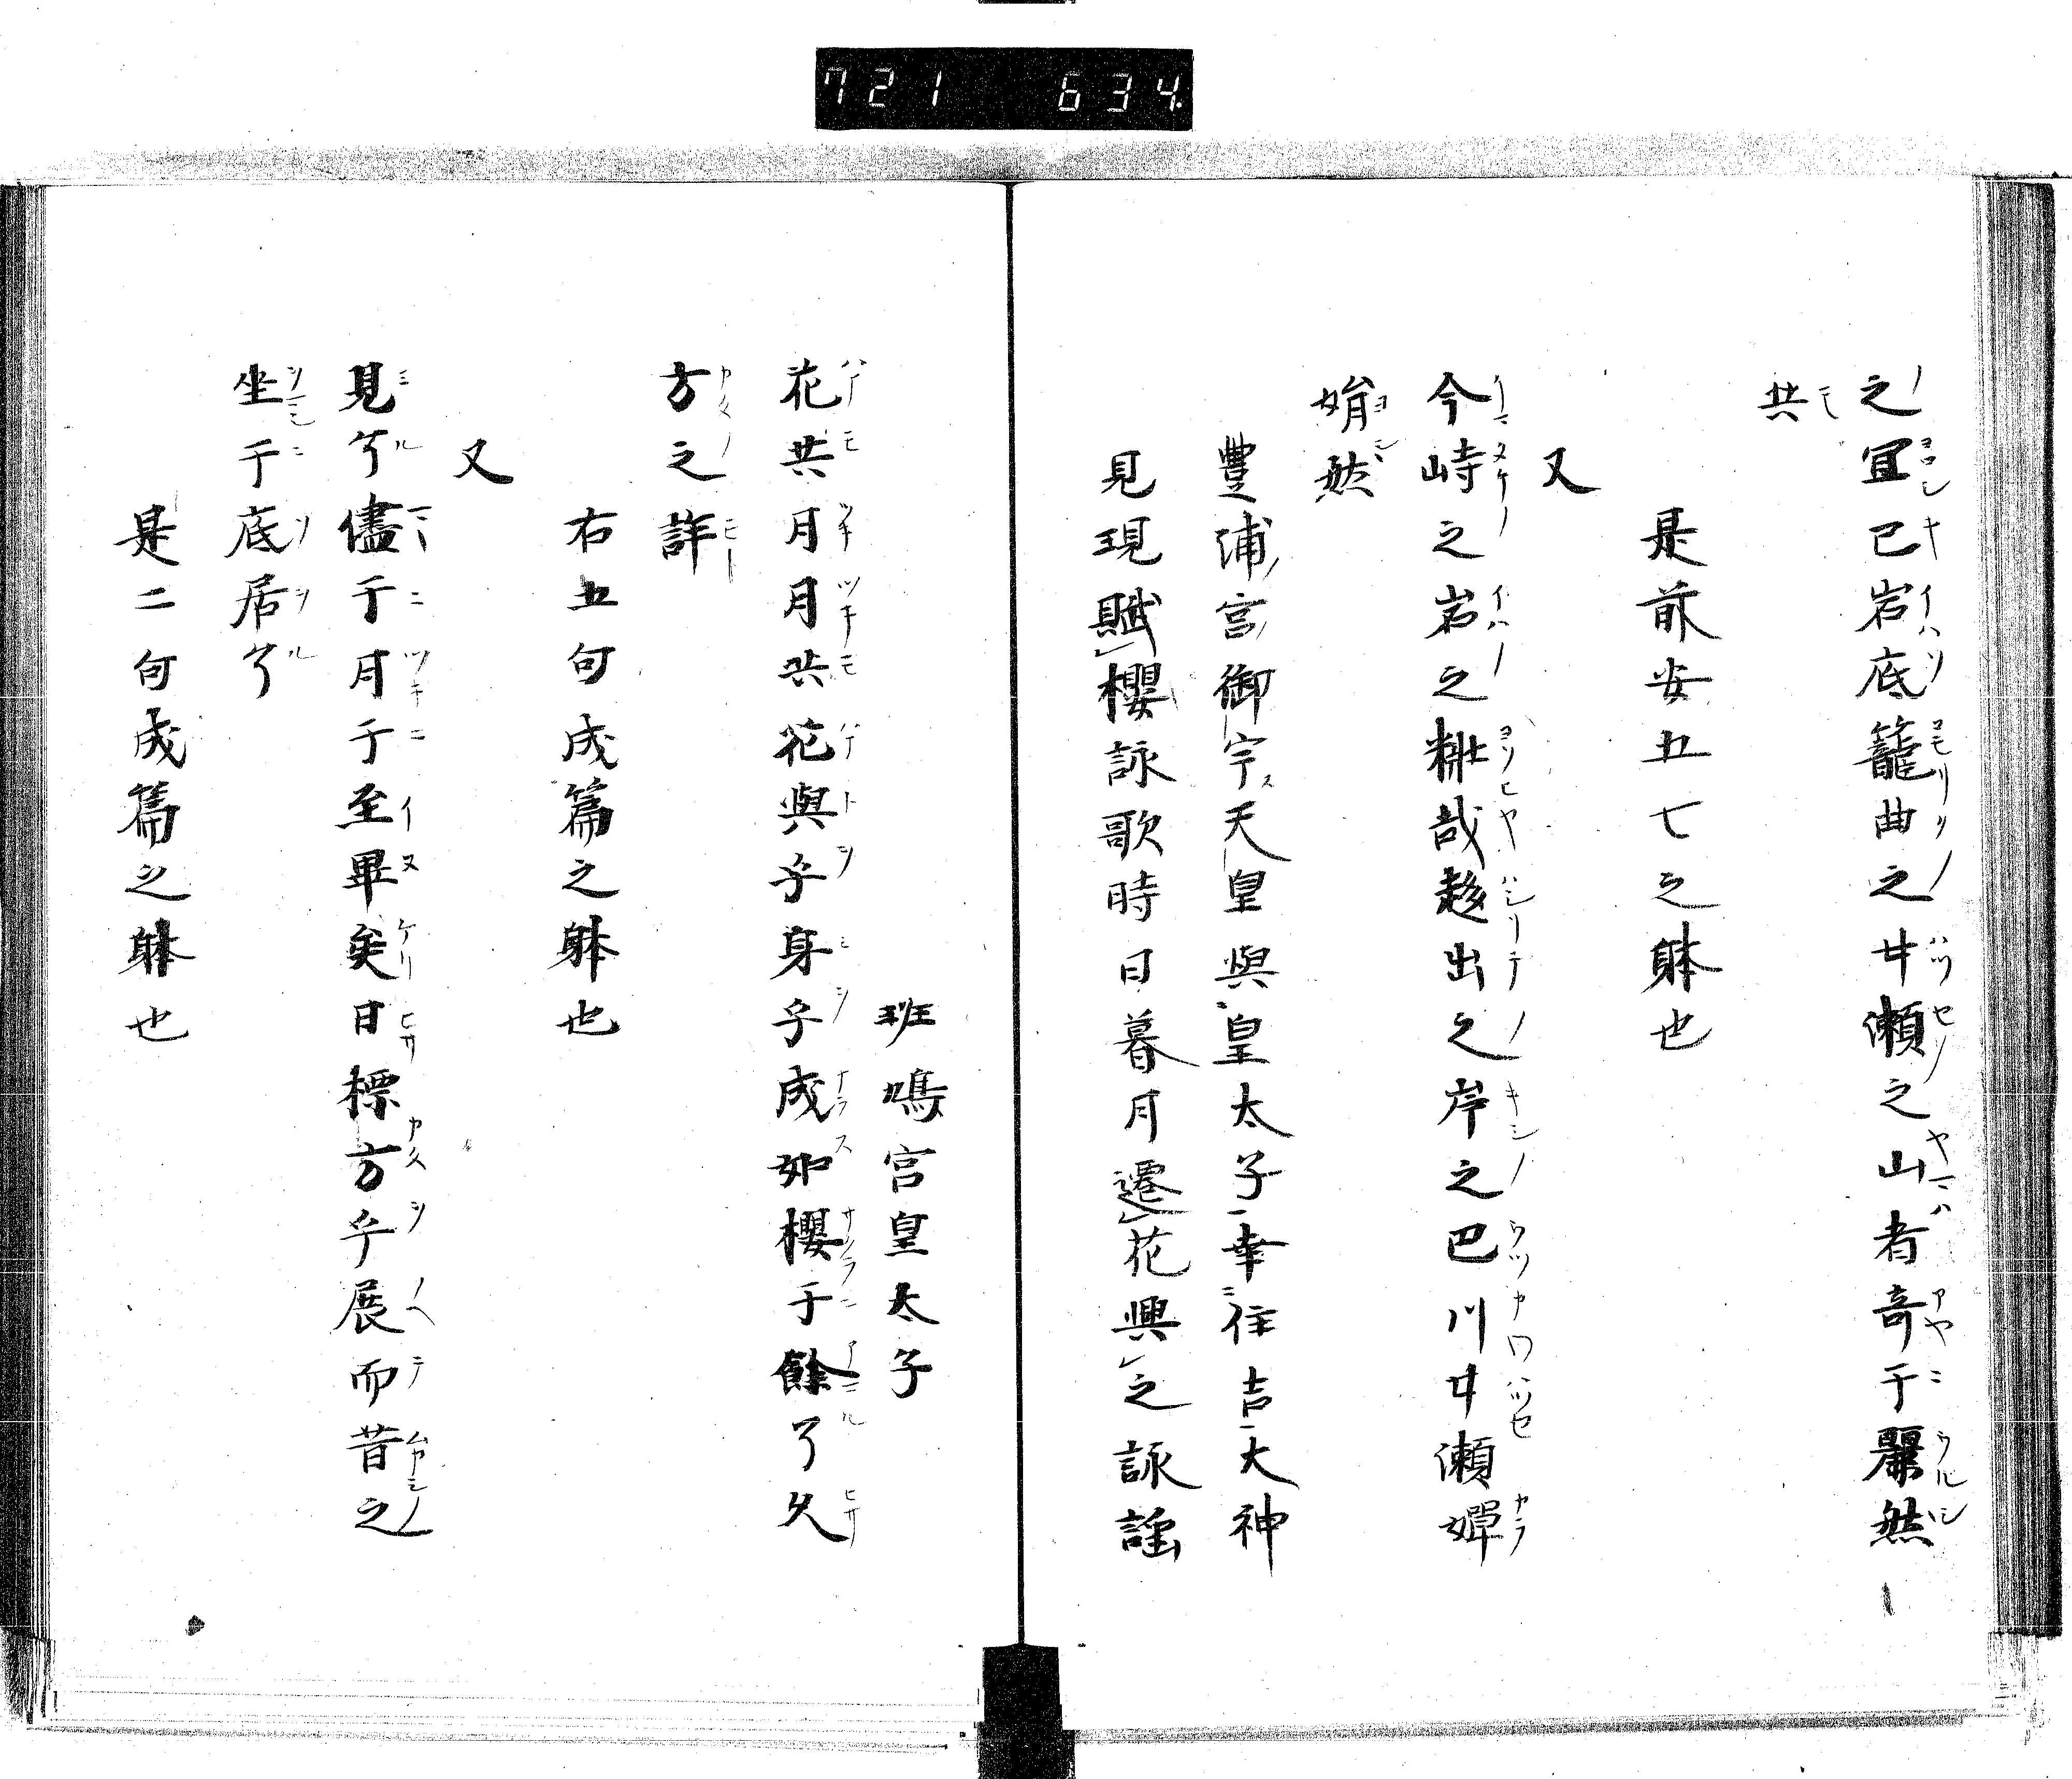 721 634
之宜已岩底籠曲之廾瀬之山者奇于麗然
共
是前安五七之躰也
又
今峙之岩之粧哉趍出之岸之巴川廾瀬嬋
娟然
豊浦宮御宇天皇與皇太子幸住吉大神
見現賦櫻詠歌時日暮月遷花興之詠謡
班鳩宮皇太子
花共月月共花與乎身乎成如櫻于餘了久
方之詳
右五句成篇之躰也
又
見兮儘于月于至畢矣日標方乎展而昔之
坐于底居兮
是二句成篇之躰也